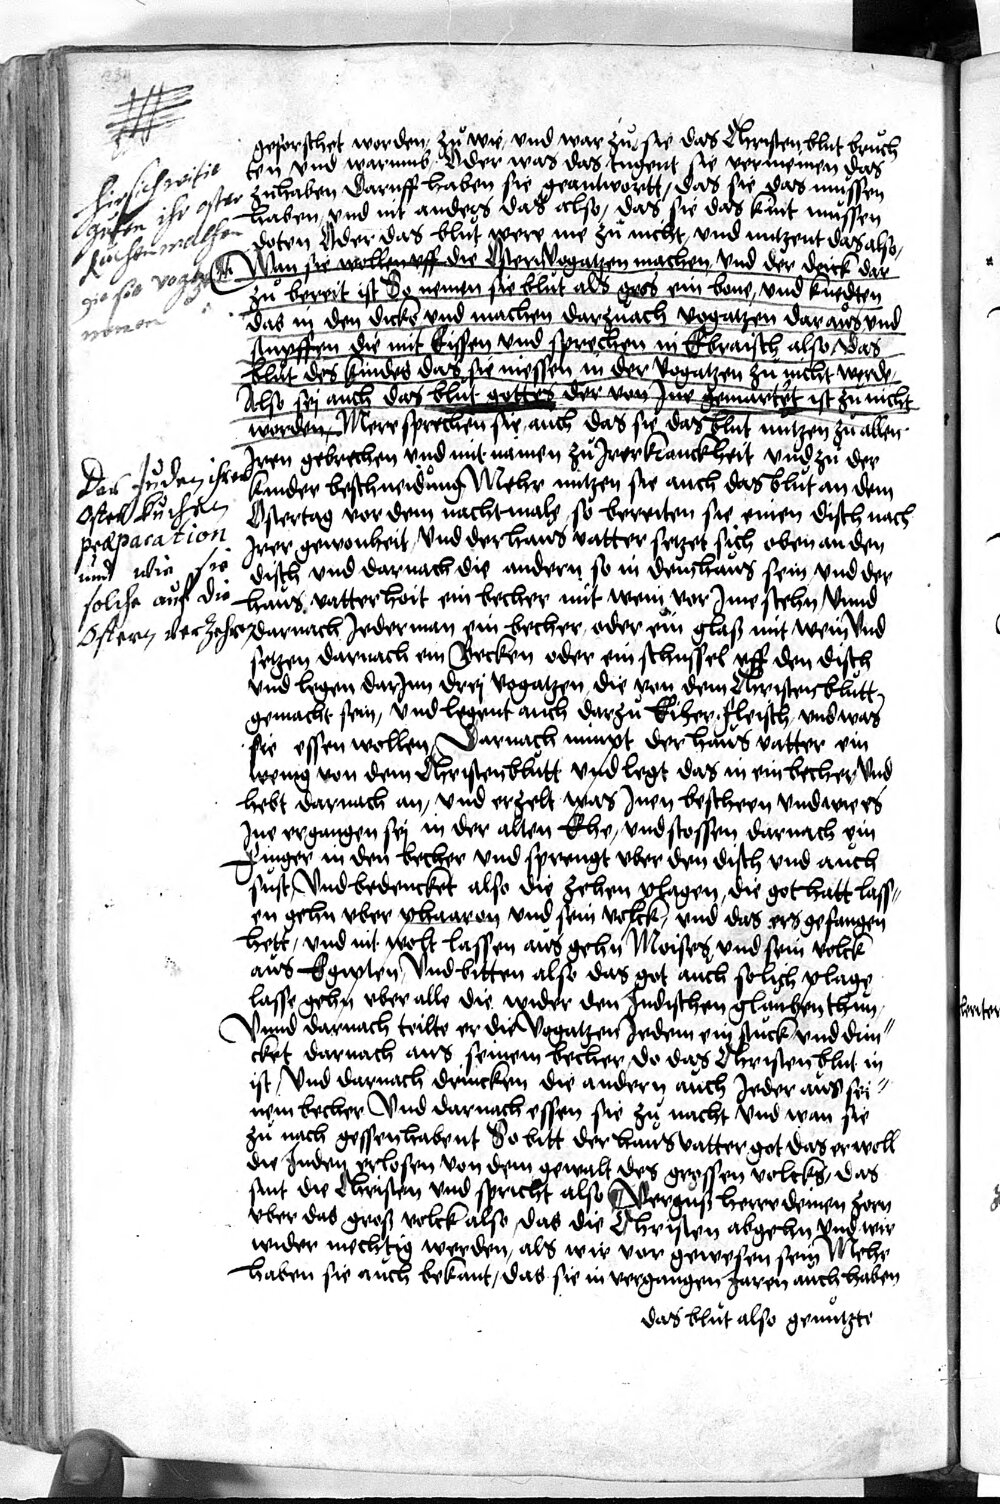 geforschet worden, zu wie, und war zu sie das Christen blut bruch
ten und warumb. Oder was das tugent sie vermeinen das
zuhaben Daruff haben sie geantwortt, das sie das mussen
haben, und nit anders das also, das sie das kint mussen
doten Oder das blut were me zu nicht und nutzent das also,
Wan sie wollen uff die Ostern Vogatzen machen, und der deick dar
zu bereit ist So nemen sie blut als gros ein bone, und knedten
das in den dicke, und machen darznach vogatzen dar aus und
stupffen die mit kissen und sprechen in Ebraisch also, Das
blut des kindes das sie niessen in der Vogatzen zu nicht werde,
Also sej auch das blut gottes der von Ine gemartet ist zu nicht
worden, Mere sprechen sie auch das sie das blut nutzen zu allen
Iren gebrechen und mit namen zu Irer kranckheit und zu der
kinder beschneidung Mehr nutzen sie auch das blut an dem
Ostertag vor dem nachtmale, so bereiten sie einen disch nach
Irer gewonheit, Und der haus vatter setzet sich oben an den
disch und darnach die andern so in dem haus sein, und der
haus vatter hoit ein becher mit wein vor Ime stehn, Unnd
darnach Jederman ein becher, oder ein glas mit wein Und
setzen darnach ein Becken oder ein schussel uff den disch
und legen darJnn drej vogatzen, die von dem Christen blutt
gemacht sein, und legent auch darzu fleisch, und was
sie essen wollen, Darnach nimpt der haus vatter ein
wenig von dem Christenblutt und legt das in ein becher Und
hebt darnach an, und erzelt was Inen bescheen und wie es
Ine ergangen sej in der alten Ehe, und stossen darnach ein
Finger in den becher und sprengt uber den disch und auch
sust, Und bedencket also die zehen plagen, die got hatt lass=
en gehn uber phaaron und sein volck, und das ers gefangen
hett, und nit wolt lassen aus gehn Moises und sein volck
aus Egipten, Und bitten also das got auch solich plage
lasse gehn uber alle die wider den Judischen glauben thun,
Unnd darnach teilte er die Vogatzen Jedem ein stuck, und din=
cket darnach aus seinem becher, do das Christen blut in
ist, Und darnach drincken die andern auch Jeder aus sei=
nem becher Und darnach essen sie zu nacht Und wan sie
zu nach gessen habent So bitt der haus vatter got das er woll
die Juden erlosen von dem gewalt des grossen volcks, das
sint die Christen und spricht also Vergus herre deinen zorn
uber das gros volck also, das die Christen abgehn und wir
wider mechtig werden, als wir vor gewesen sein Mehr
haben sie auch bekant, das sie in vergangen Jaren auch haben
das blut also genutzte
ihr oster
kuchen
Das Juden ihren
Oster kuchen
præparation
und wie sie
solche auf die
Ostern verzehren